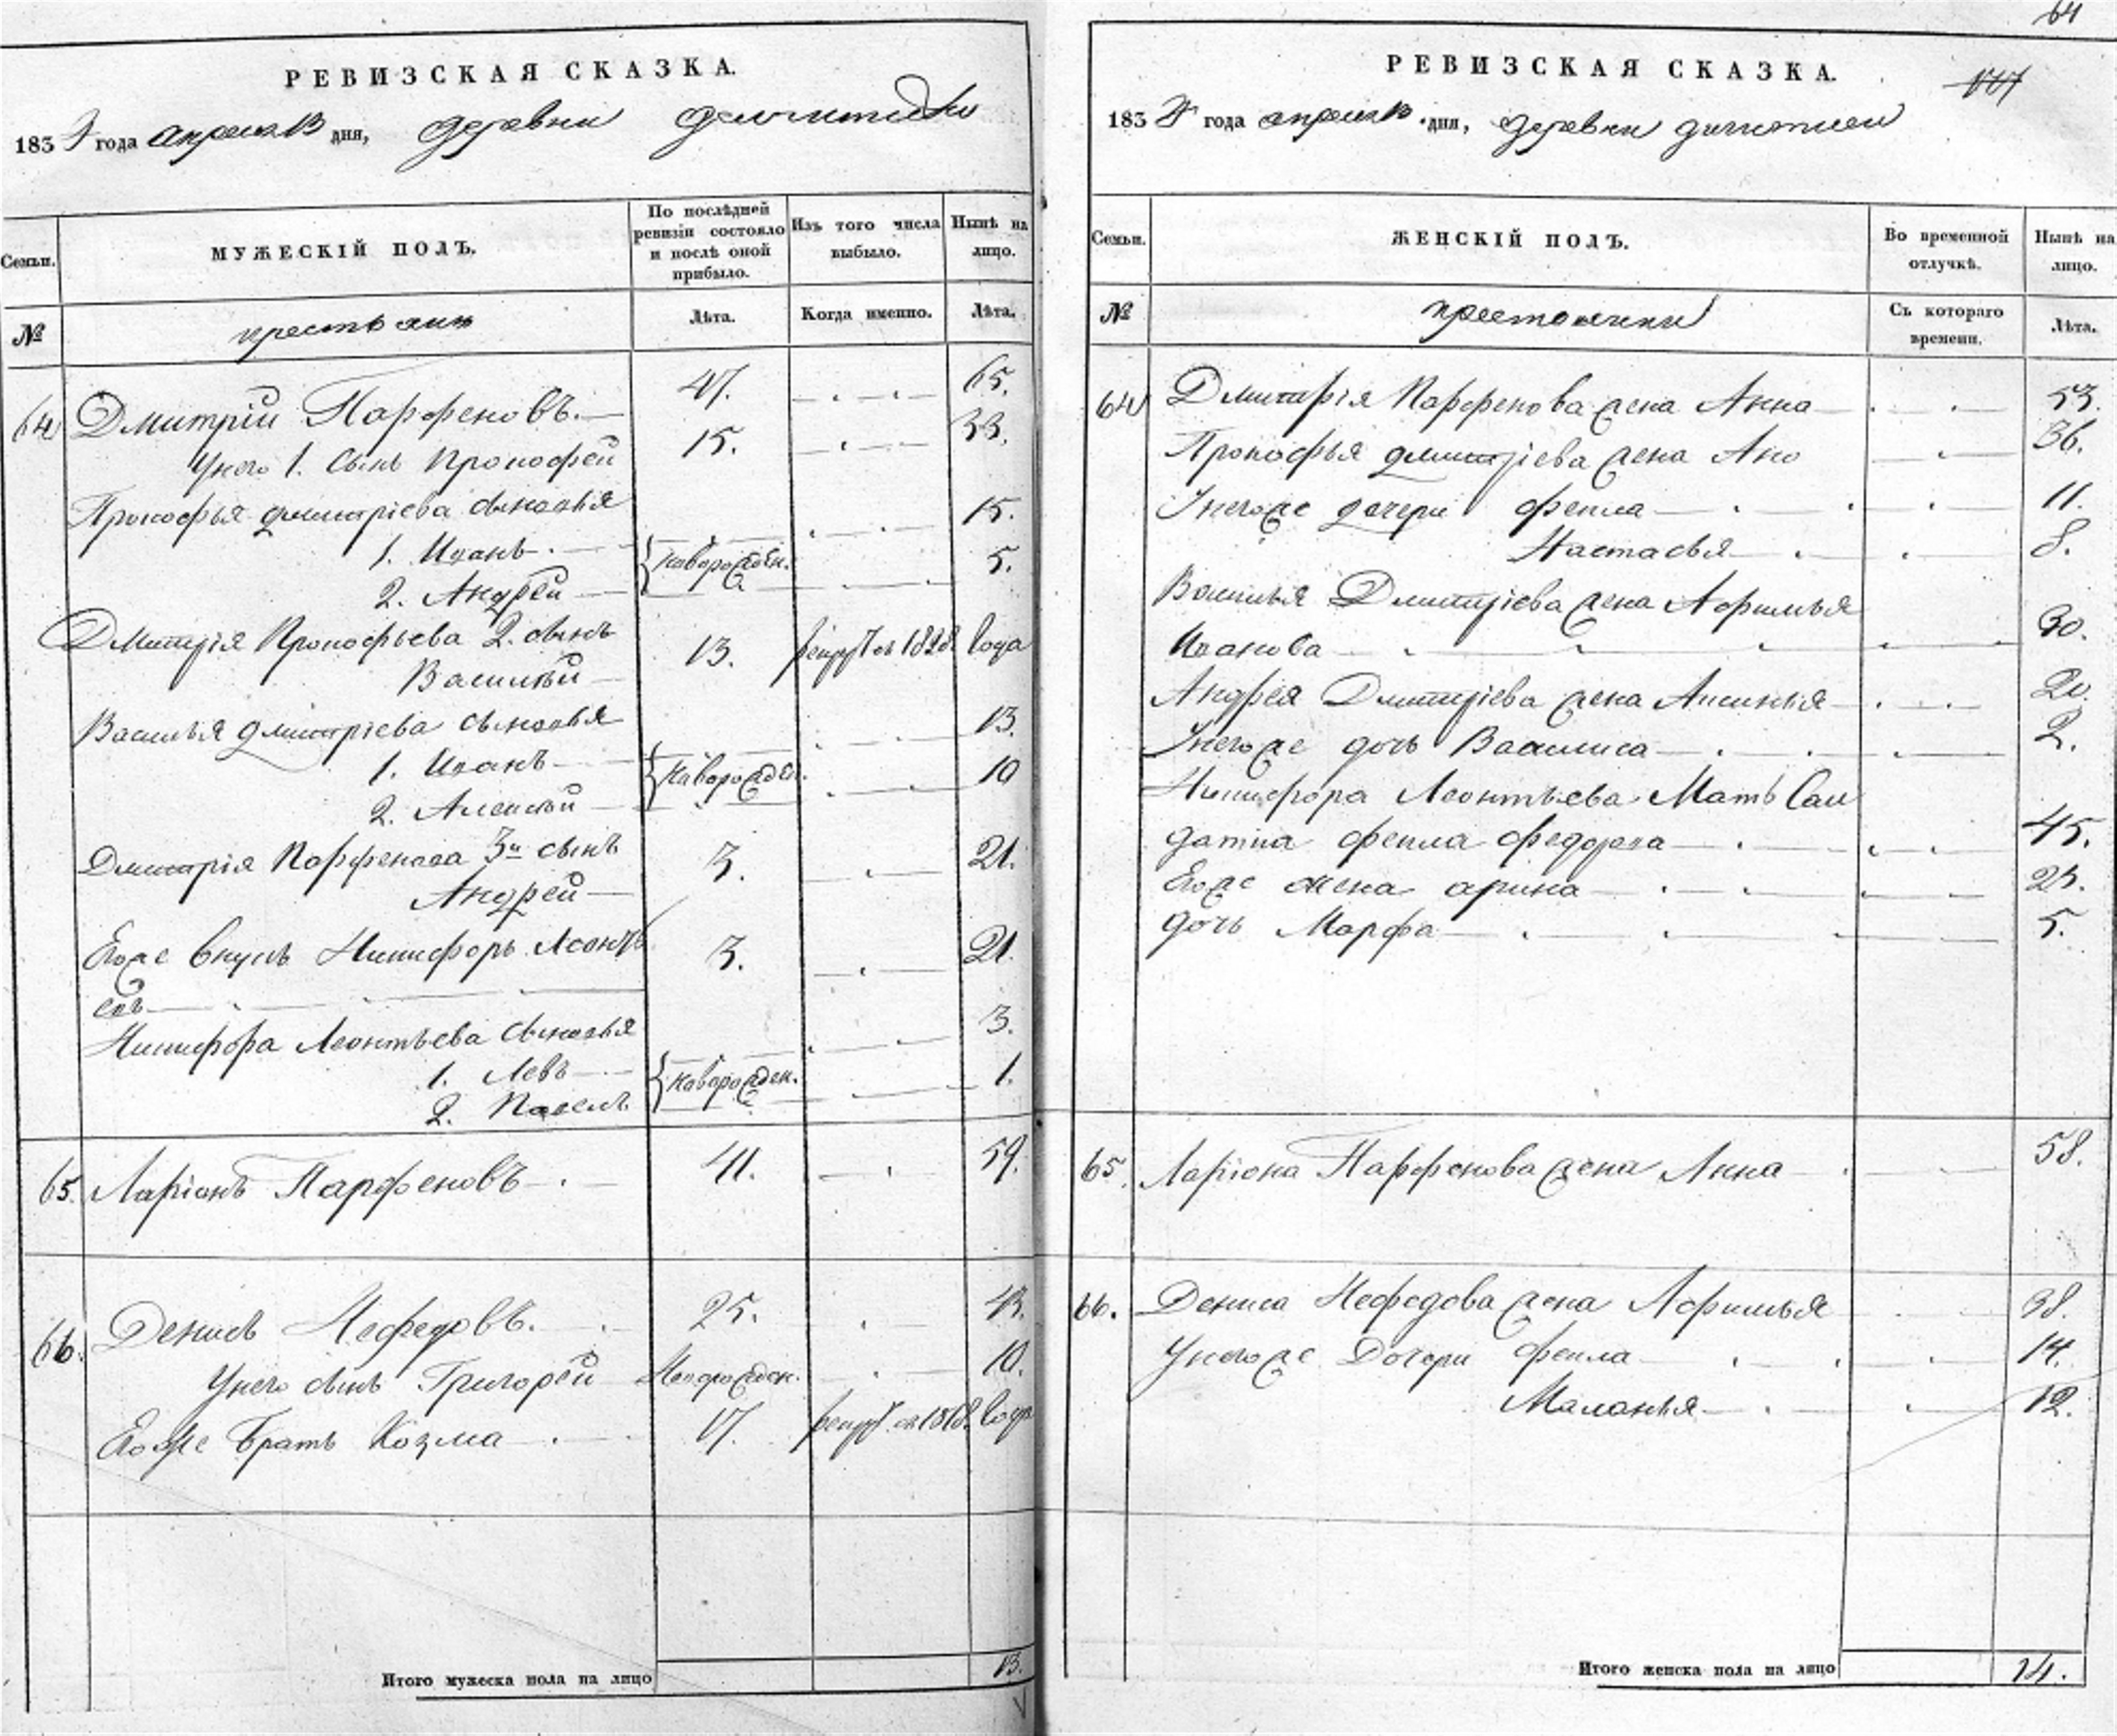 РЕВИЗСКАЯ СКАЗКА.
1834 года апреля 13 дня, деревни
Семьи.
МУЖЕСКІЙ ПОЛЪ.
По послѣдней ревизіи состояло и послѣ оной прибыло.
Изъ того числа выбыло.
Нынѣ на лицо.
№
крестьяне
Лѣта.
Когда именно.
Лѣта.
64 Дмитрій Парфеновъ. 47. 65.
Унего 1. сынъ Прокофей 15. 33.
Прокофья Дмитріева сыновья
1. Иванъ 15.
новорожден.
2. Андрей 5.
Дмитрія Прокофьева 2. сынъ
Василей 13. рекрут въ 1828 года
Василья Дмитріева сыновья
1. Иванъ 13.
новорожден.
2. Алексей 10
Дмитрія Парфенова 3й сынъ
Андрей 3. 21.
Егоже внукъ Никифоръ Леонть 3. 21.
евъ
Никифора Леонтьева сыновья
1. Левъ 3.
новорожден.
2. Павелъ 1.
65. Ларіонъ Парфеновъ 41. 59.
66. Денисъ Нефедовъ. 25. 43.
Унего сынъ Григорей новорожден. 10.
Егоже братъ Козма 17. рекрут. въ 1818. года
Итого мужеска пола на лицо 13.
64
РЕВИЗСКАЯ СКАЗКА.
1834 года апреля 13 дня, деревни
Семьи.
ЖЕНСКІЙ ПОЛЪ.
Во временной отлучкѣ.
Нынѣ на лицо.
№
крестьянки
Съ котораго времени.
Лѣта.
64 Дмитрія Парфенова жена Анна 53.
Прокофья Дмитріева жена 36.
Унегоже дочери Фекла 11.
Настасья 8.
Василья Дмитріева жена Афимья
Иванова 30.
Андрея Дмитріева жена Аксинья 20.
Унегоже дочь Василиса 2.
Никифора Леонтьева Мать Сал
датка Фекла Федорова 45.
Егоже жена Арина 25.
дочь Марфа 5.
65. Ларіона Парфенова жена Анна 58.
66. Дениса Нефедова жена Афимья 38.
Унегоже Дочери Фекла 14.
Маланья 12.
Итого женска пола на лицо 14.